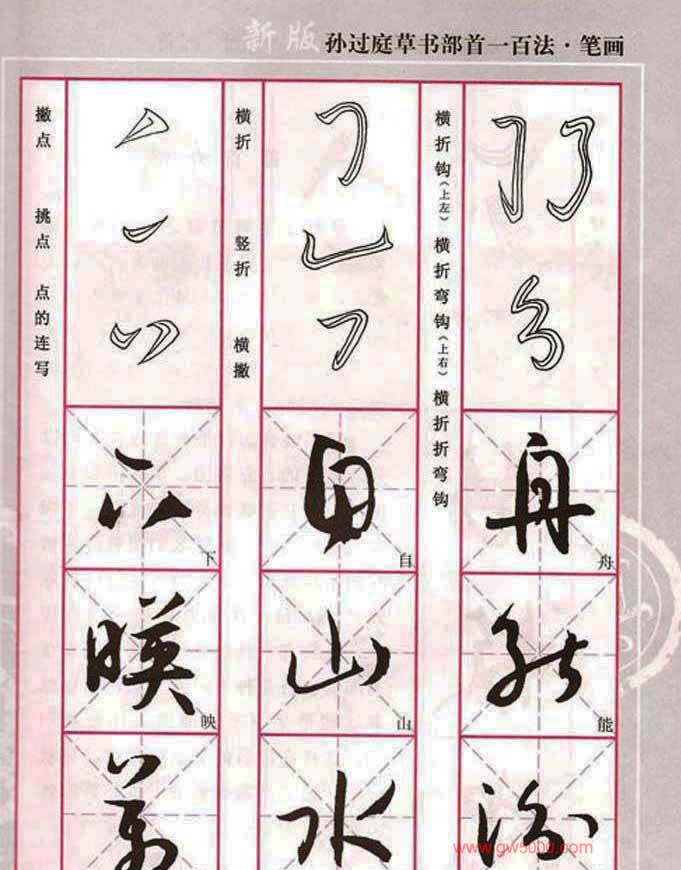 新版 孙过庭草书部首一百法·笔画
撇点 挑点 点的连写
下
下
映
映
横折 竖折 横撇
自
自
山
山
水
横折钩(上左) 横折弯钩(上右) 横折折弯钩
舟
舟
能
能
www.gw5000.com